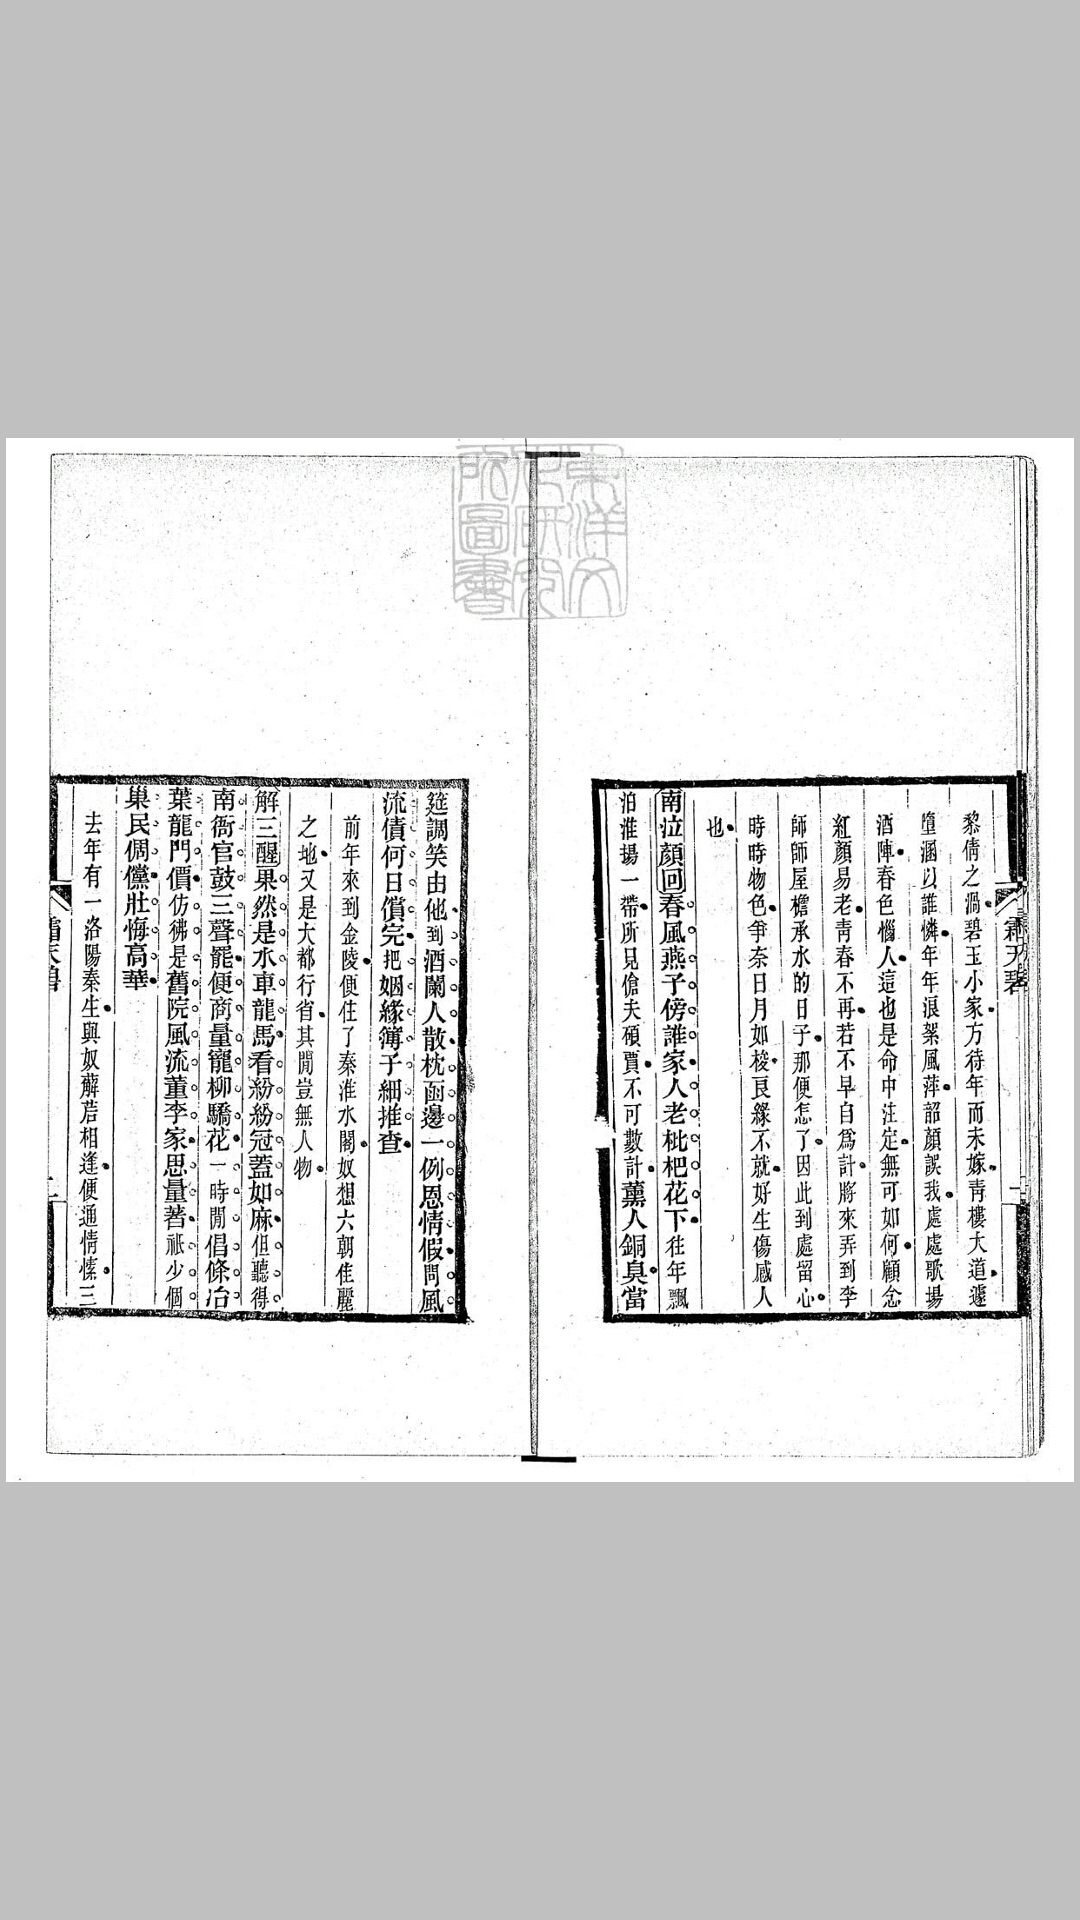 黎倩之渦碧玉小家方待年而未嫁青樓大道遽
墮涵以誰憐年年浪絮風萍韶顏誤我處處歌場
酒陣春色惱人這也是命中注定無可如何願念
紅顏易老青春不再若不早自爲計將來弄到李
師師屋檐承水的日子那便怎了因此到處留心
時時物色爭奈日月如梭良緣不就好生傷感人
也
南泣顏回春風燕子傍誰家人老枇杷花下往年飄
泊淮揚一帶所見傖夫碩賈不可數計薰人銅臭當
筵調笑由他到酒闌人散枕函邊一例恩情假問風
流債何日償完把姻緣簿子細推查
前年來到金陵便住了秦淮水閣奴想六朝佳麗
之地又是大都行省其閒豈無人物
解三酲果然是水車龍馬看紛紛冠蓋如麻但聽得
南衙官鼓三聲罷便商量寵柳驕花一時閒倡條冶
葉龍門價仿彿是舊院風流董李家思量著祇少個
巢民倜儻壯悔高華
去年有一洛陽秦生與奴蘼蕪相逢便通情愫三
霜天碧
東洋文化研究所圖書